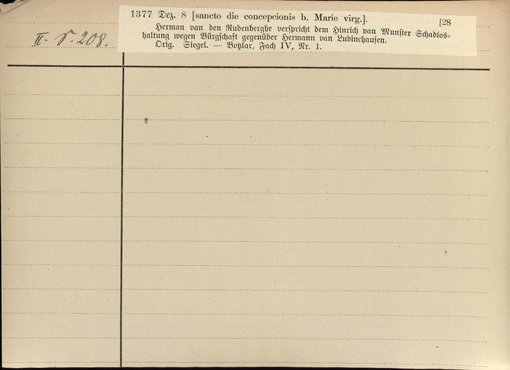 1377 Dez. 8 [sancto die concepcionis b. Marie virg.]. [28
Herman van den Rudenberghe verspricht dem Hinrich van Munster Schadlos-
haltung wegen Bürgschaft gegenüber Hermann van Ludinchausen.
Orig. Siegel. — Botzlar, Fach IV, Nr. 1.
II. S. 208.